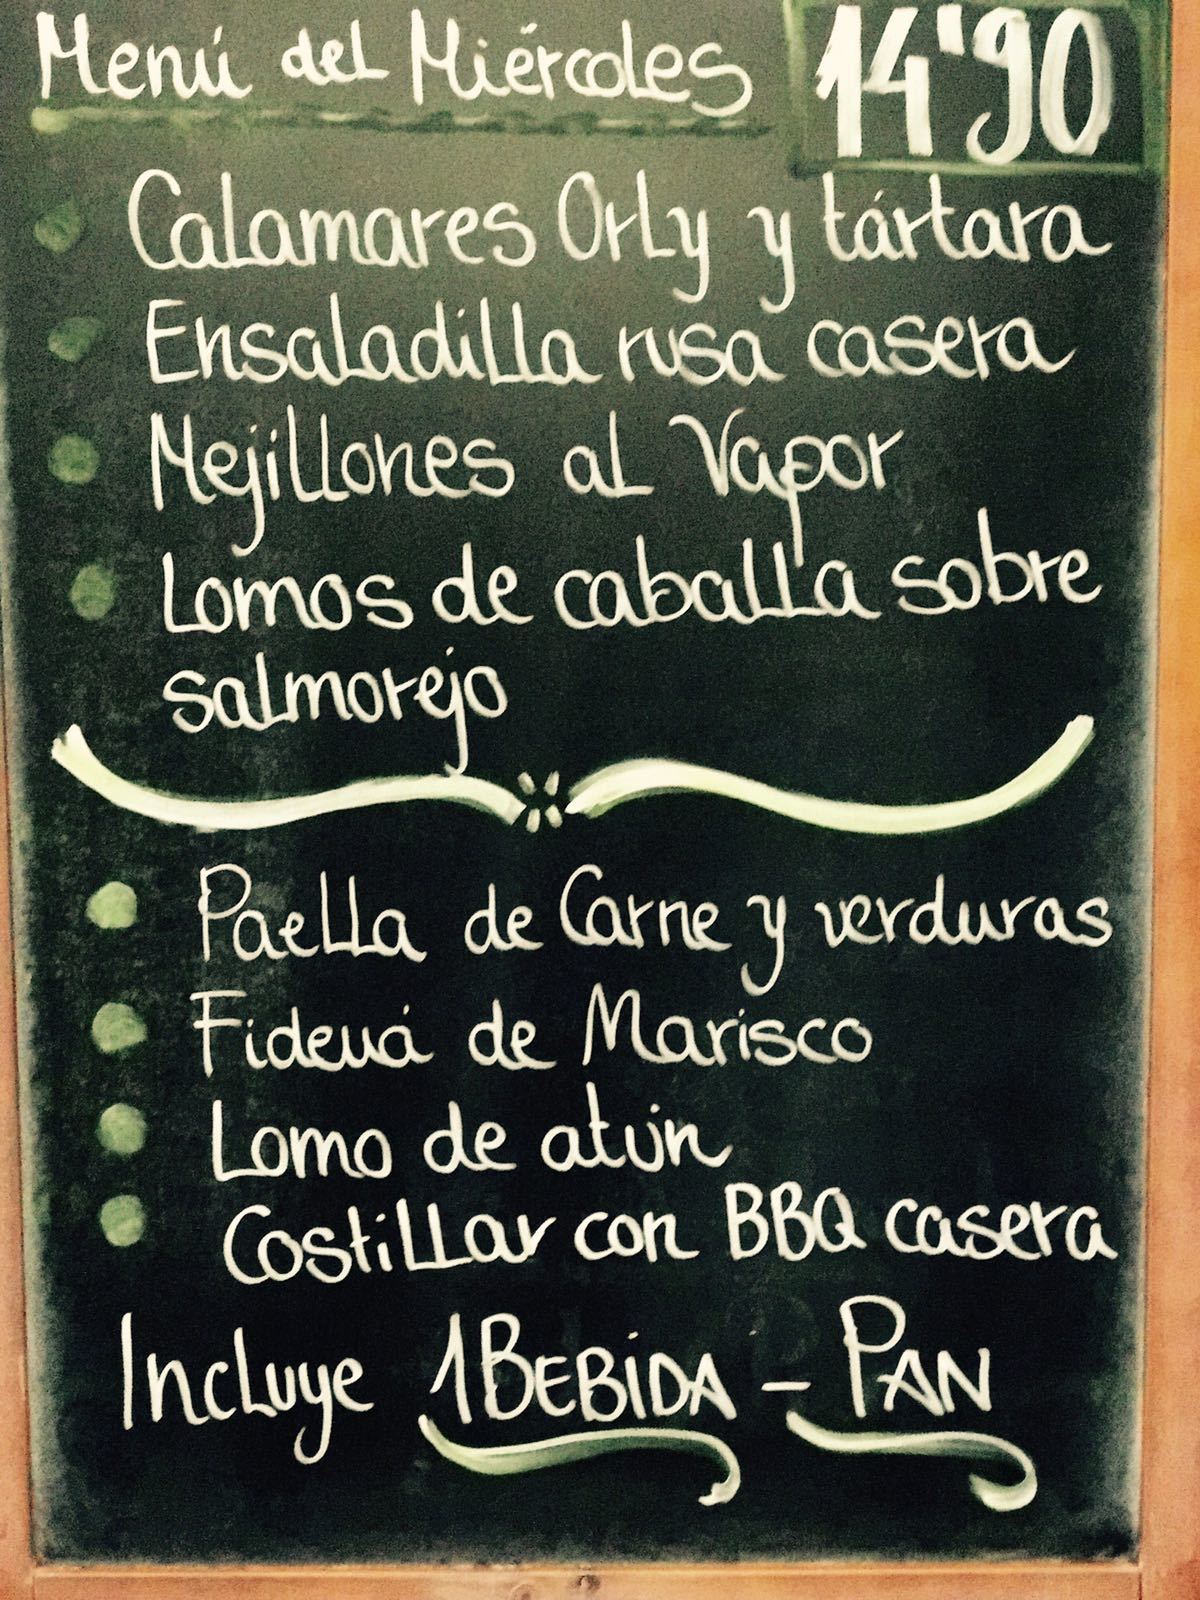 Menú del Miércoles 14'90
Calamares Orly y tártara
Ensaladilla rusa casera
Mejillones al Vapor
Lomos de caballa sobre
salmorejo
Paella de Carne y verduras
Fideuá de Marisco
Lomo de atún
Costillar con BBQ casera
Incluye 1 BEBIDA - PAN